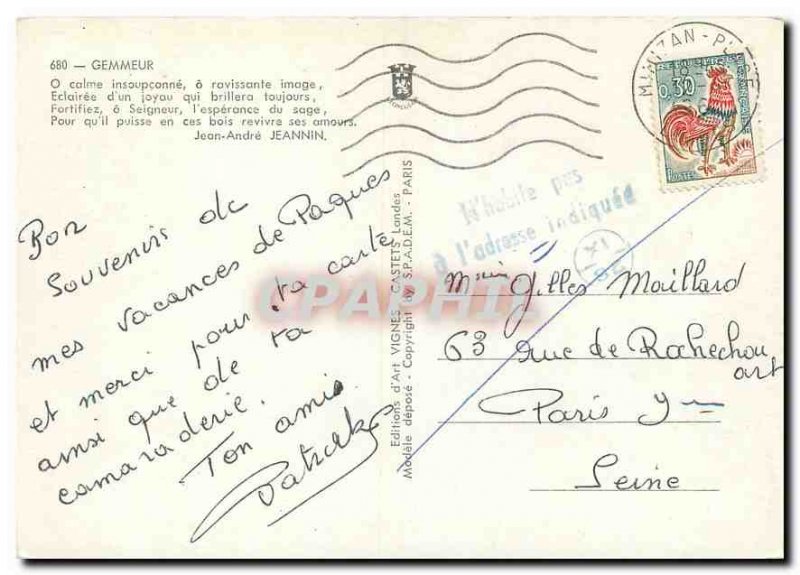 680 — GEMMEUR
O calme insoupçonné, ô ravissante image,
Eclairée d'un joyau qui brillera toujours,
Fortifiez, ô Seigneur, l'espérance du sage,
Pour qu'il puisse en ces bois revivre ses amours.
Jean-André JEANNIN.
Bon
Souvenir de
mes vacances de Paques
et merci pour ta carte
ainsi que de ta
camaraderie.
Ton ami
Patrick
Editions d'Art VIGNES - CASTETS Landes
Modèle déposé - Copyright by S.P.A.D.E.M. - PARIS
CPAPHIL
MIMIZAN-PLAGE
0,30
POSTES
N'habite pas
à l'adresse indiquée
Gilles Maillard
63 rue de Rochechou
art
Paris 9me
Seine